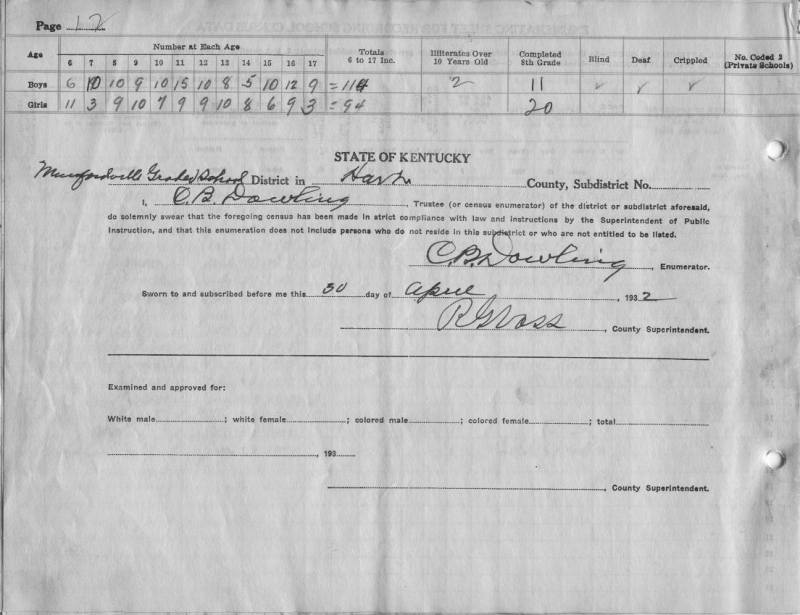 Page 12
Age Number at Each Age Totals 6 to 17 Inc. Illiterates Over 10 Years Old Completed 8th Grade Blind Deaf Crippled No. Coded 2 (Private Schools)
6 7 8 9 10 11 12 13 14 15 16 17
Boys 6 10 10 9 10 15 10 8 5 10 12 9 =114 2 11 ✓ ✓ ✓
Girls 11 3 9 10 7 9 9 10 8 6 9 3 =94 20
STATE OF KENTUCKY
Munfordville Graded School District in Hart County, Subdistrict No.
I, C.B. Dowling, Trustee (or census enumerator) of the district or subdistrict aforesaid,
do solemnly swear that the foregoing census has been made in strict compliance with law and instructions by the Superintendent of Public
Instruction, and that this enumeration does not include persons who do not reside in this subdistrict or who are not entitled to be listed.
C.B. Dowling, Enumerator.
Sworn to and subscribed before me this 30 day of April, 1932
County Superintendent.
Examined and approved for:
White male; white female; colored male; colored female; total
, 193
, County Superintendent.